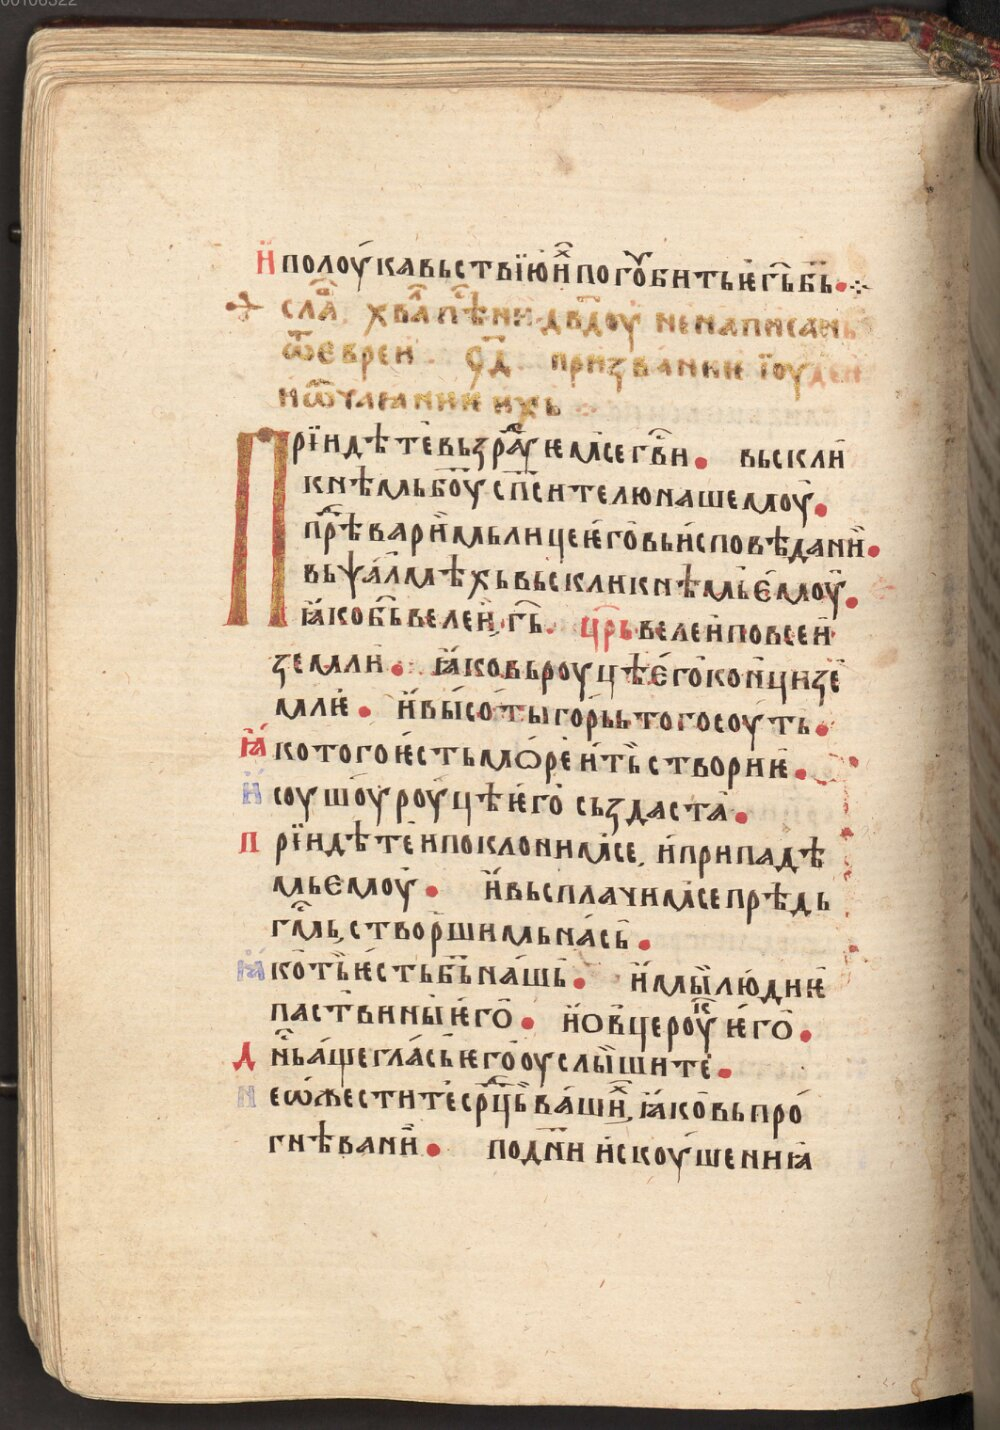 00106322
И҆ полоу́кавьствїю и҆ⷯ погоу́бить ѥ г҃ь б҃ь
слаⷡ҇ хваⷧ҇ пѣⷭ҇ни дв҃доу ненаписань
ѿ еврей ч҃д призваниѥ їоуден
и ѿчаꙗниѥ ихь
Прїидѣте вьзраⷣуѥмсе г҃ви вьскли
кнѣмь б҃оу сп҃сителю нашемоу
прⷣѣваримь лице ѥго вь исповѣдани
вь ѱалмѣхь вьскликнѣмь ѥмоу
ꙗко б҃ь велей г҃ь ц҃рь велей по всей
земли ꙗко вь роуцѣ его конци зе
млѥ и высоты горь того соуть
ꙗко того ѥсть морѥ и ть створи ѥ
и соушоу роуцѣ ѥго създаста
прїидѣте и поклонимсе, и припадѣ
мь ѥмоу и вьсплачимсе прѣдь
г҃мь, створшимь нась
ꙗко ть ѥсть б҃ь нашь и мы людиѥ
паствины ѥго и ѡвце роукы ѥго
дн҃ь аще глась ѥго оуслышите
не ѡжестите срⷣць вашиⷯ, ꙗко вь про
гнѣвани по дн҃и искоушениꙗ